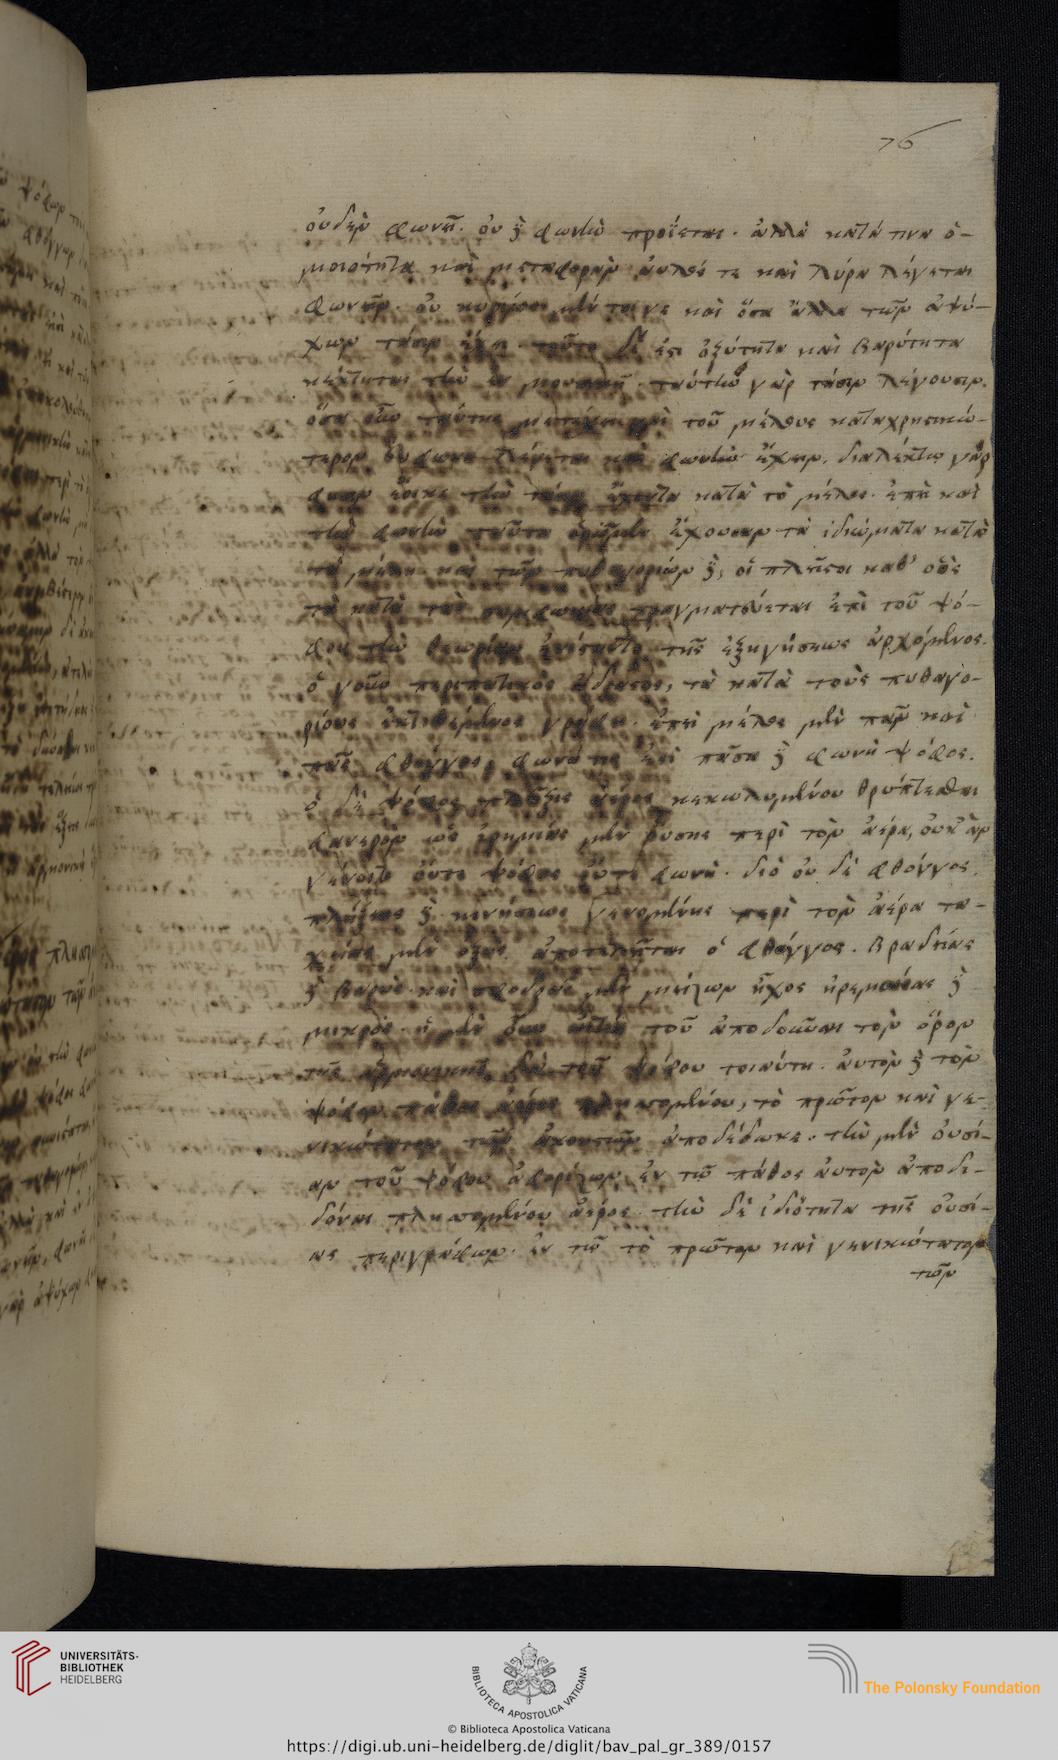 76
οὐδὲν φωνεῖ. οὐ δὲ φωνὴν προΐεται. ἀλλὰ κατά τινα ὁ-
μοιότητα καὶ μεταφορὰν αὐλός τε καὶ λύρα λέγεται
φωνεῖν. οὐ κυρίως μέν τοι γε καὶ ὅσα ἄλλα τῶν ἀψύ-
χων τάσιν ἔχει. τοῦτο δέ ἐστι ὀξύτητα καὶ βαρύτητα
κέκτηται τὴν ἐν μουσικῇ. ταύτην γὰρ τάσιν λέγουσιν.
ὅσα οὖν ταύτης μετέχει καὶ τοῦ μέλους καταχρηστικώ-
τερον λέγεται καὶ φωνὴν ἔχειν. διαλέκτῳ γὰρ
ἔοικε τὴν τάσιν ἔχοντα κατὰ τὸ μέλος. ἐπεὶ καὶ
τὴν φωνὴν ταῦτα ὁρῶμεν ἔχουσαν τὰ ἰδιώματα κατὰ
τὰ μέλη καὶ τῶν πυθαγορίων δὲ, οἱ πλεῖστοι καθ' οὓς
τὰ κατὰ τὰς συμφωνίας πραγματεύεται ἐπὶ τοῦ ψό-
φου τὴν θεωρίαν ἐνίσταντο τῆς ἐξηγήσεως ἀρχόμενος.
ὁ γοῦν περιπατικὸς ἄδραστος, τὰ κατὰ τοὺς πυθαγο-
ρίους ἐκτιθέμενος γράφει. ἐπεὶ μέλος μὲν πᾶν καὶ
πᾶς φθόγγος, φωνή τίς ἐστι πᾶσα δὲ φωνὴ ψόφος.
ὁ δὲ ψόφος πλῆξις ἀέρος κεκωλυμένου θρύπτεσθαι
φανερὸν ὡς ἠρεμίας μὲν οὔσης περὶ τὸν ἀέρα, οὐκ ἂν
γένοιτο οὔτε ψόφος οὔτε φωνή. διὸ οὐ δὲ φθόγγος.
πλήξεως δὲ κινήσεως γενομένης περὶ τὸν ἀέρα τα-
χείας μὲν ὀξὺς ἀποτελεῖται ὁ φθόγγος. βραδείας
δὲ βαρύς. καὶ σφοδρᾶς μὲν μείζων ἦχος ἠρεμαίας δὲ
μικρός. ἡ μὲν οὖν αἰτία τοῦ ἀποδοῦναι τὸν ὅρον
τῆς ἁρμονικῆς διὰ τοῦ ψόφου τοιαύτη. αὐτὸν δὲ τὸν
ψόφον πάθος ἀέρος πλησσομένου, τὸ πρῶτον καὶ γε-
νικώτατον τῶν ἀκουστῶν ἀποδέδωκε. τὴν μὲν οὐσί-
αν τοῦ ψόφου ἀφορίζων, ἐν τῷ πάθος αὐτὸν ἀποδι-
δόναι πλησσομένου ἀέρος. τὴν δὲ ἰδιότητα τῆς οὐσί-
ας περιγράφων. ἐν τῷ τὸ πρῶτον καὶ γενικώτατον
τῶν
UNIVERSITÄTS-
BIBLIOTHEK
HEIDELBERG
BIBLIOTECA APOSTOLICA VATICANA
The Polonsky Foundation
© Biblioteca Apostolica Vaticana
https://digi.ub.uni-heidelberg.de/diglit/bav_pal_gr_389/0157